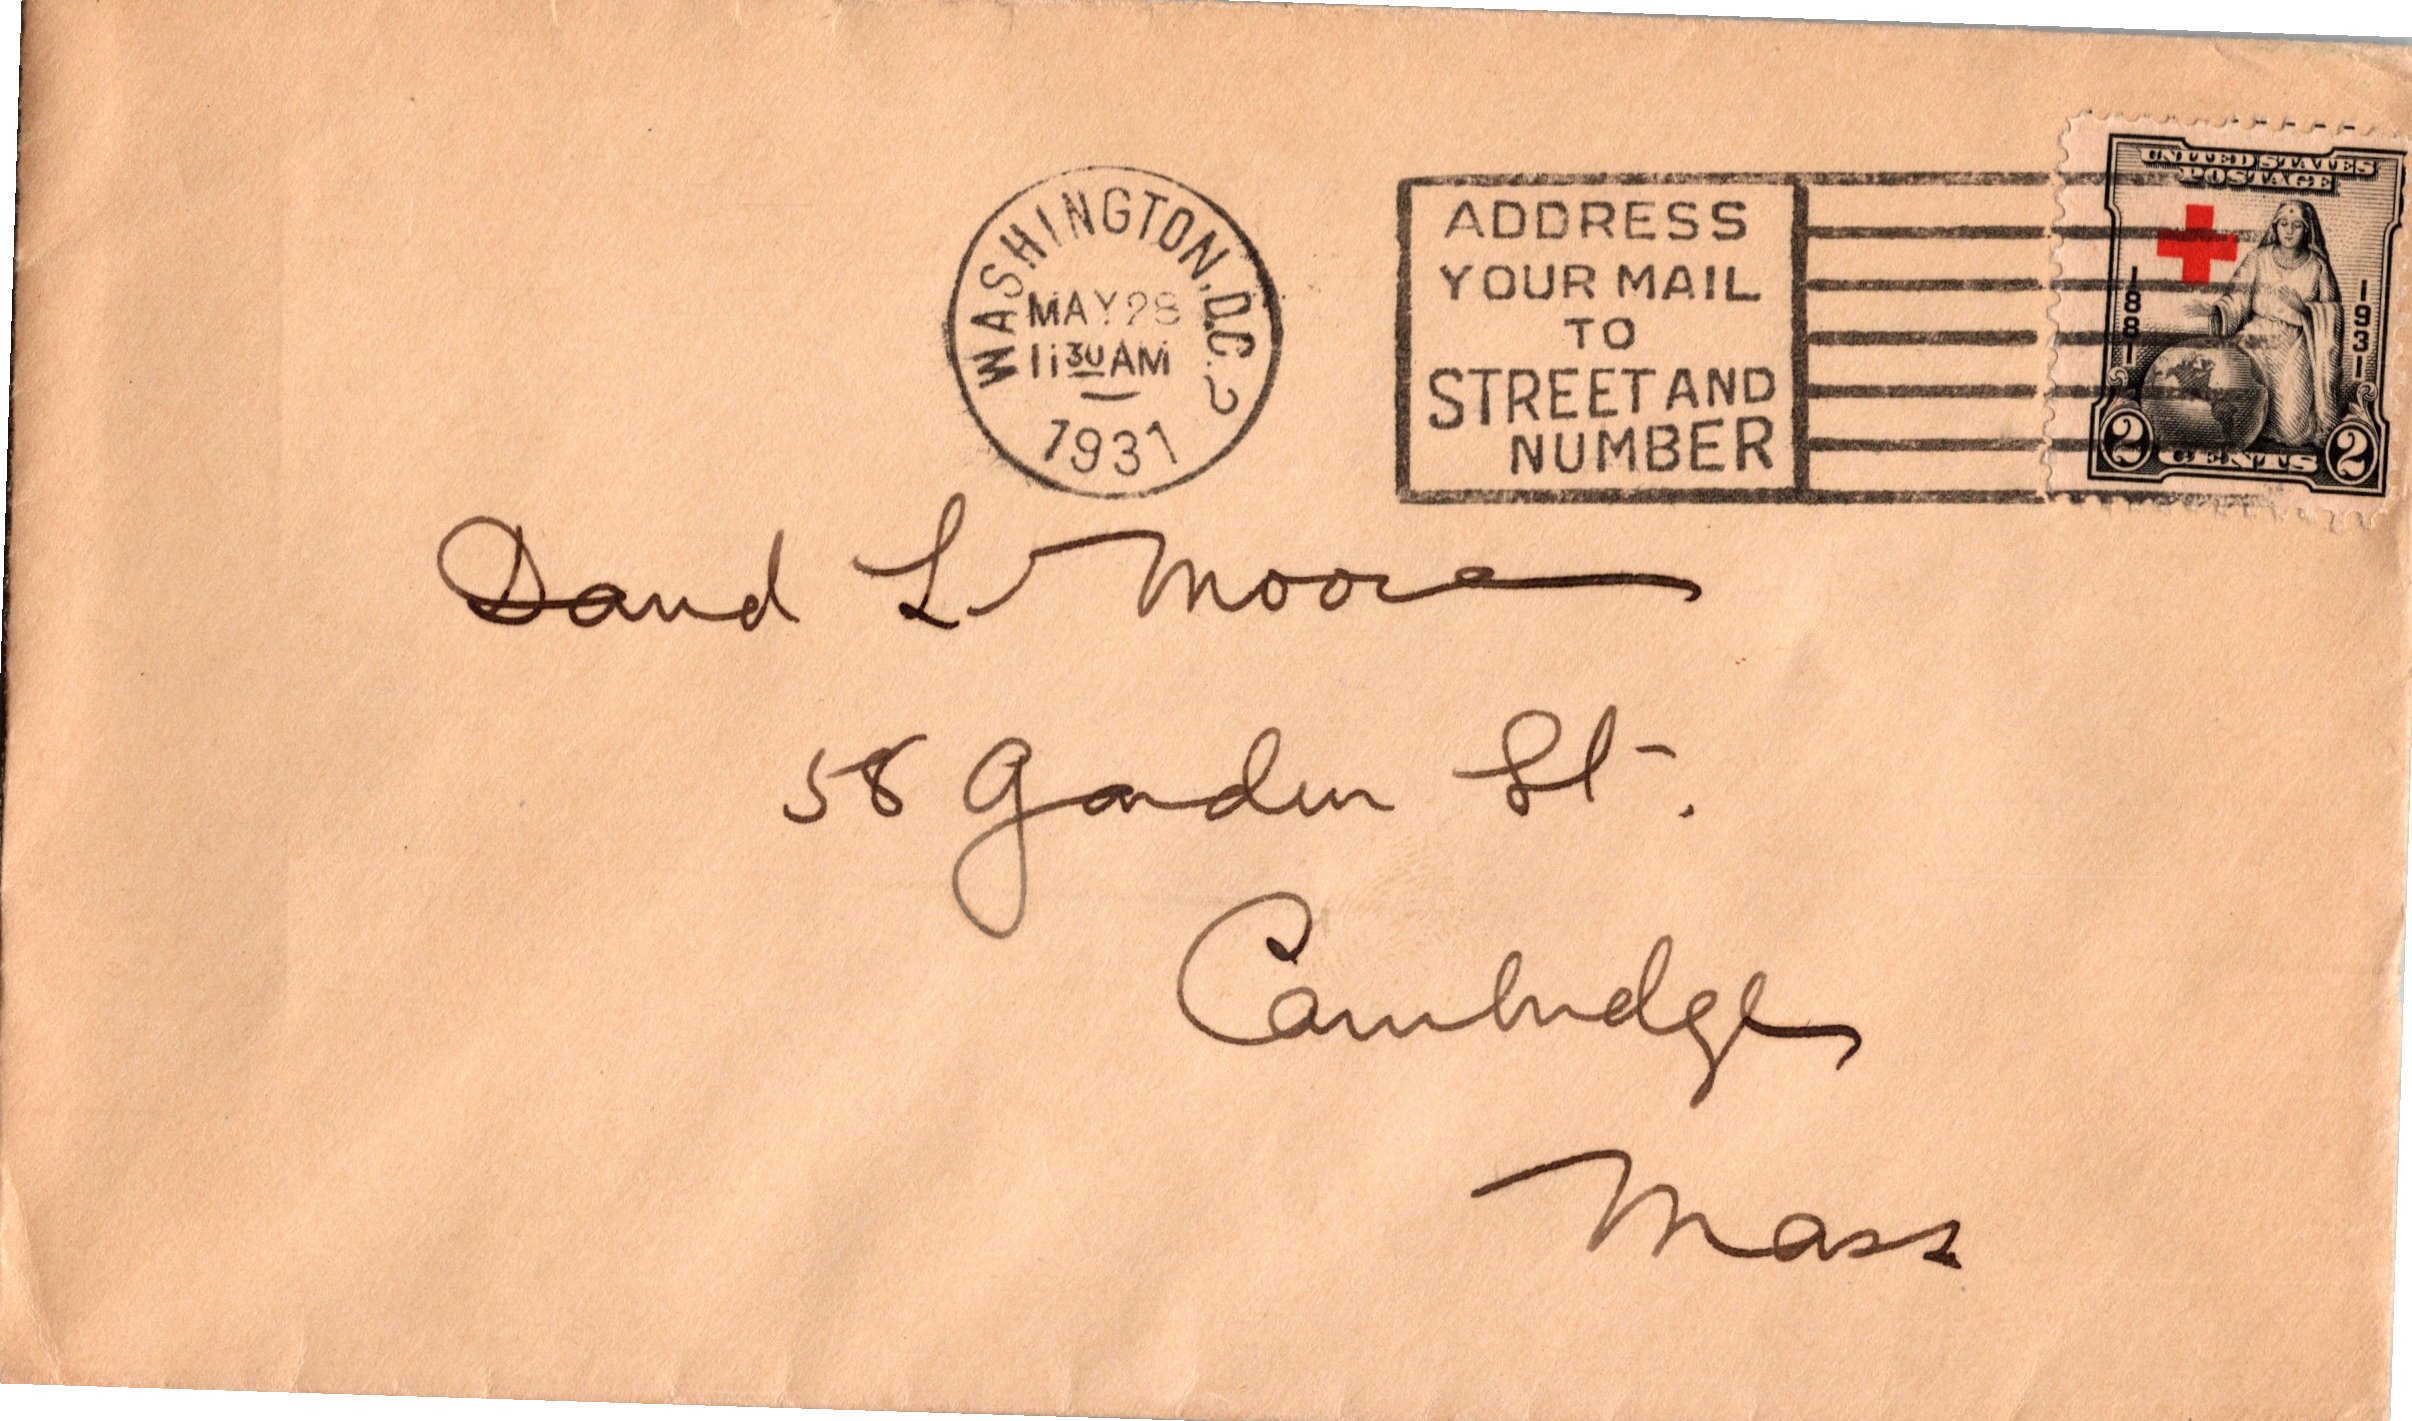 WASHINGTON, D.C. 2
MAY 28
11 30 AM
1931
ADDRESS
YOUR MAIL
TO
STREET AND
NUMBER
UNITED STATES
POSTAGE
1881
1931
2 CENTS 2
David L Moore
58 Garden St.
Cambridge
Mass